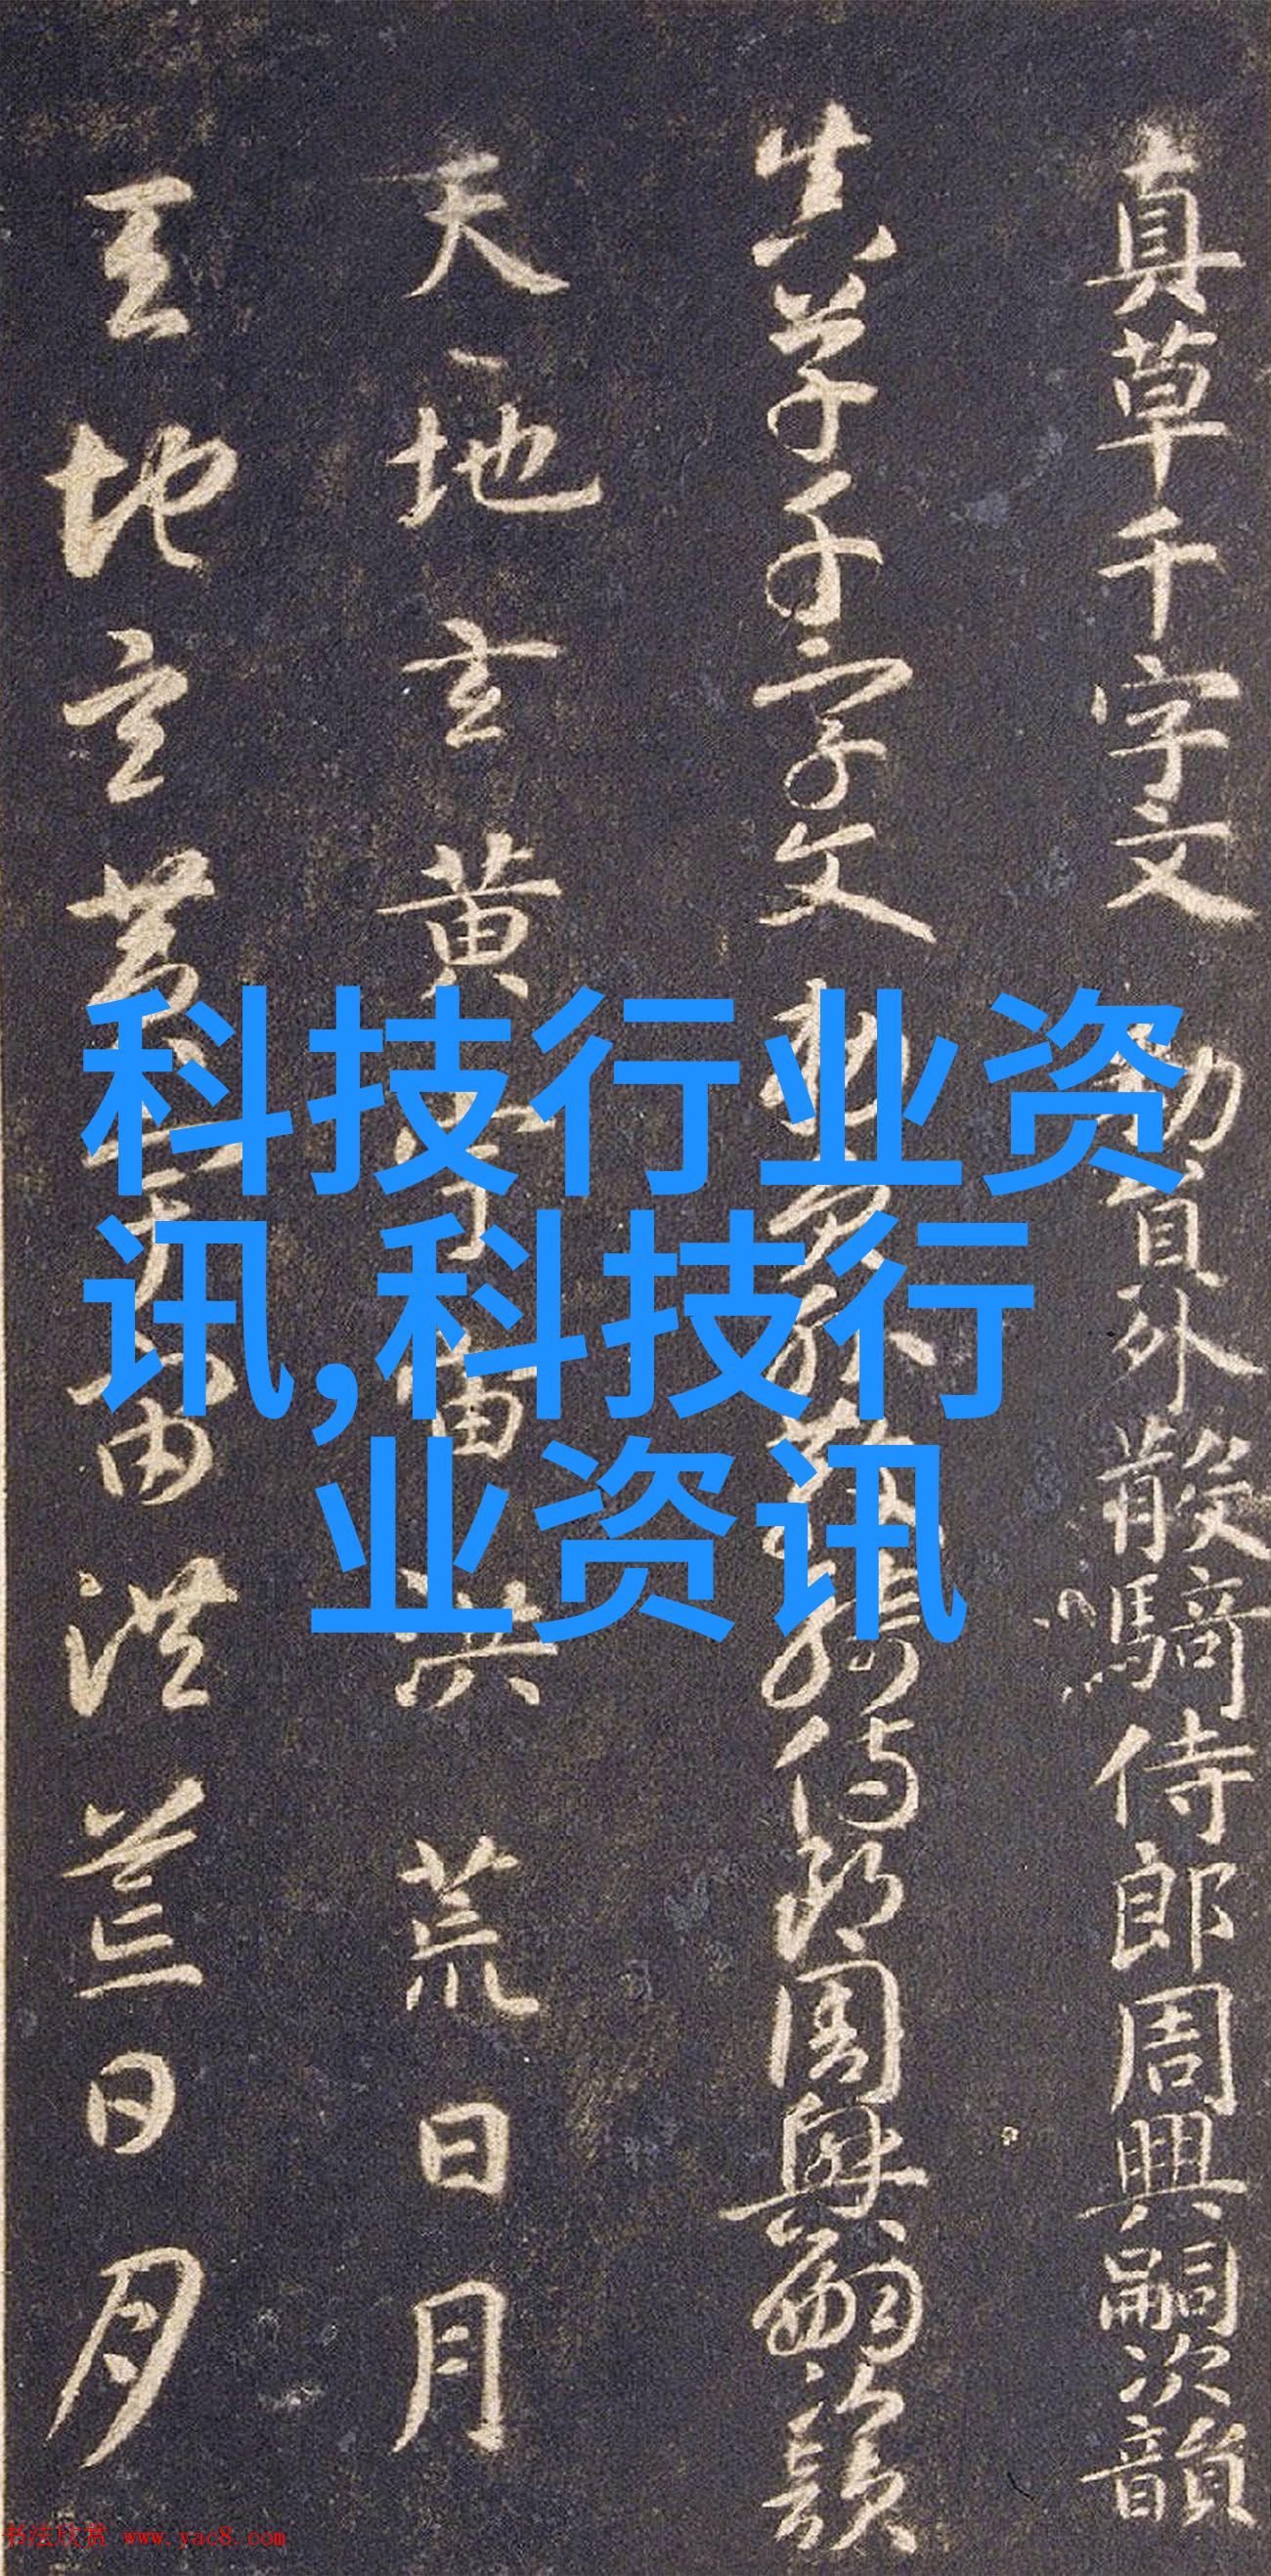 真草千字文 勑員外散騎侍郎周興嗣次韻
真草千字文 勑員外散騎侍郎周興嗣次韻
天地玄黄宇宙洪荒日月
天地玄黄宇宙洪荒日月
科技行业资
讯,科技行
业资讯
书法欣赏 www.yac8.com